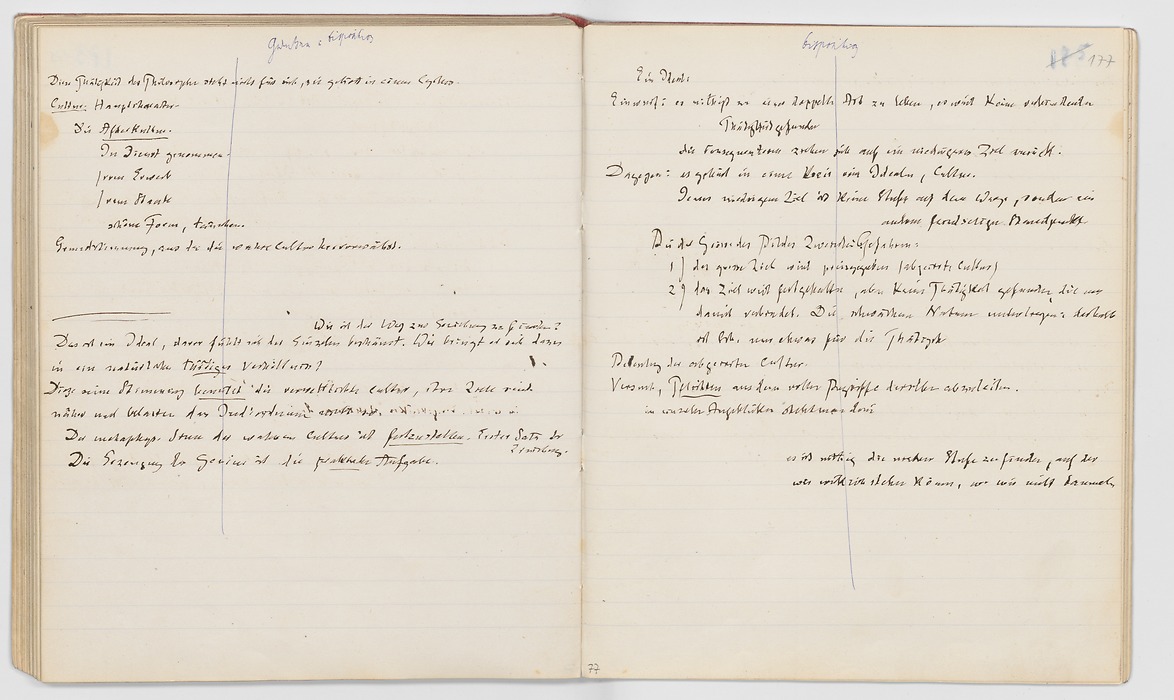 Diese Thätigkeit des Philosophen steht nicht für sich, sie gehört in einen Cyclus.
Cultur. Hauptcharakter.
Die Afterkultur.
In Dienst genommen.
vom Erwerb
vom Staate
schöne Form, täuschen.
Grundstimmung, aus der die wahre Cultur hervorwächst.
Wie ist der Weg zur Erziehung zu finden?
Das ist ein Ideal, davor fühlt sich der Einzelne beschämt. Wie bringt er sich dazu
in ein natürliches thätiges Verhältniss?
Diese seine Stimmung benutzt die verweltlichte Cultur, ihre Ziele sind
näher und belasten das Individuum
Die metaphys. Sinn der wahren Cultur ist festzustellen. Erster Satz der
Erziehung.
Die Erzeugung des Genius ist die praktische Aufgabe.
77
177
Ein Ideal:
Einwurf: es nöthigt zu einer doppelten Art zu leben, es wird keine verbindende
Thätigkeit gefunden
die Consequenteren ziehen sich auf ein niedrigeres Ziel zurück.
Dagegen: es gehört in einen Kreis von Idealen, Cultur.
Jenes niedrigere Ziel ist keine Stufe auf dem Wege, sondern ein
anderes feindseliges
Gefahren:
1) das grosse Ziel wird preisgegeben (abgeirrte Cultur)
2) das Ziel wird festgehalten, aber keine Thätigkeit gefunden, die uns
damit verbindet. Die schwächeren Naturen unterliegen: deshalb
ist etwas für die Thätigen
Bedeutung der abgeirrten Cultur.
Versuch, Pflichten aus dem vollen Begriffe derselben abzuleiten.
in einzelnen Augenblicken steht man darin
es ist nöthig die niedere Stufe zu finden, auf der
wir wirklich stehen können, wo wir nicht